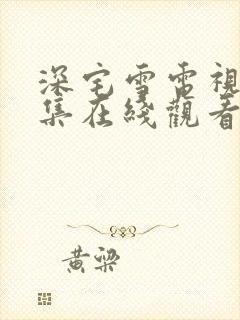 深宅雪電視
集在綫觀看
黄梁